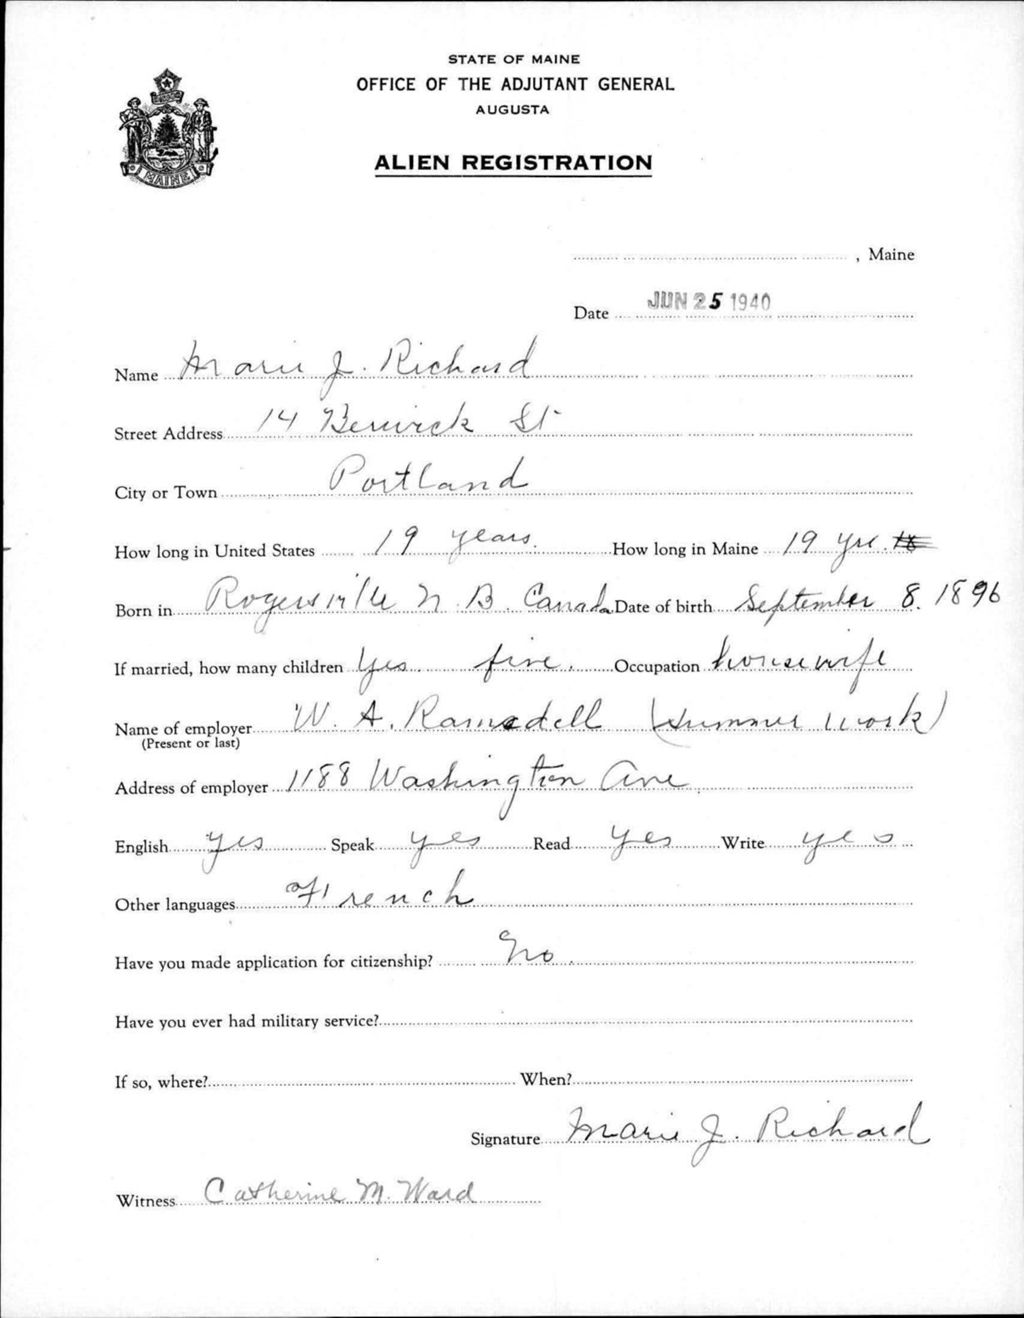 STATE OF MAINE
OFFICE OF THE ADJUTANT GENERAL
AUGUSTA
ALIEN REGISTRATION
MAINE
, Maine
Date JUN 25 1940
Name Marie J. Richard
Street Address 14 Berwick St
City or Town Portland
How long in United States 19 years. How long in Maine 19 yrs.
Born in Rogersville N. B. Canada Date of birth September 8. 1896
If married, how many children Yes. five. Occupation housewife
Name of employer W. A. Ramsdell (summer work)
(Present or last)
Address of employer 1188 Washington Ave.
English yes Speak yes Read yes Write yes
Other languages French
Have you made application for citizenship? No.
Have you ever had military service?
If so, where? When?
Signature Marie J. Richard
Witness Catherine M. Ward